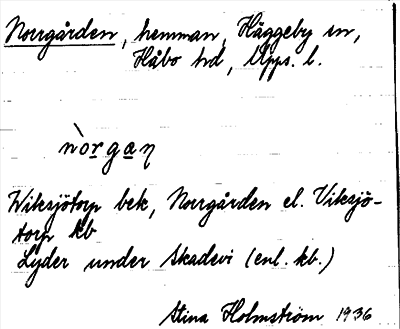 Norrgården, hemman, Häggeby sn,
Håbo hd, Upps. l.
nòrgaṇ
Wiksjötorp bek, Norrgården el. Viksjö-
torp kb
Lyder under Skadevi (enl. kb.)
Stina Holmström 1936